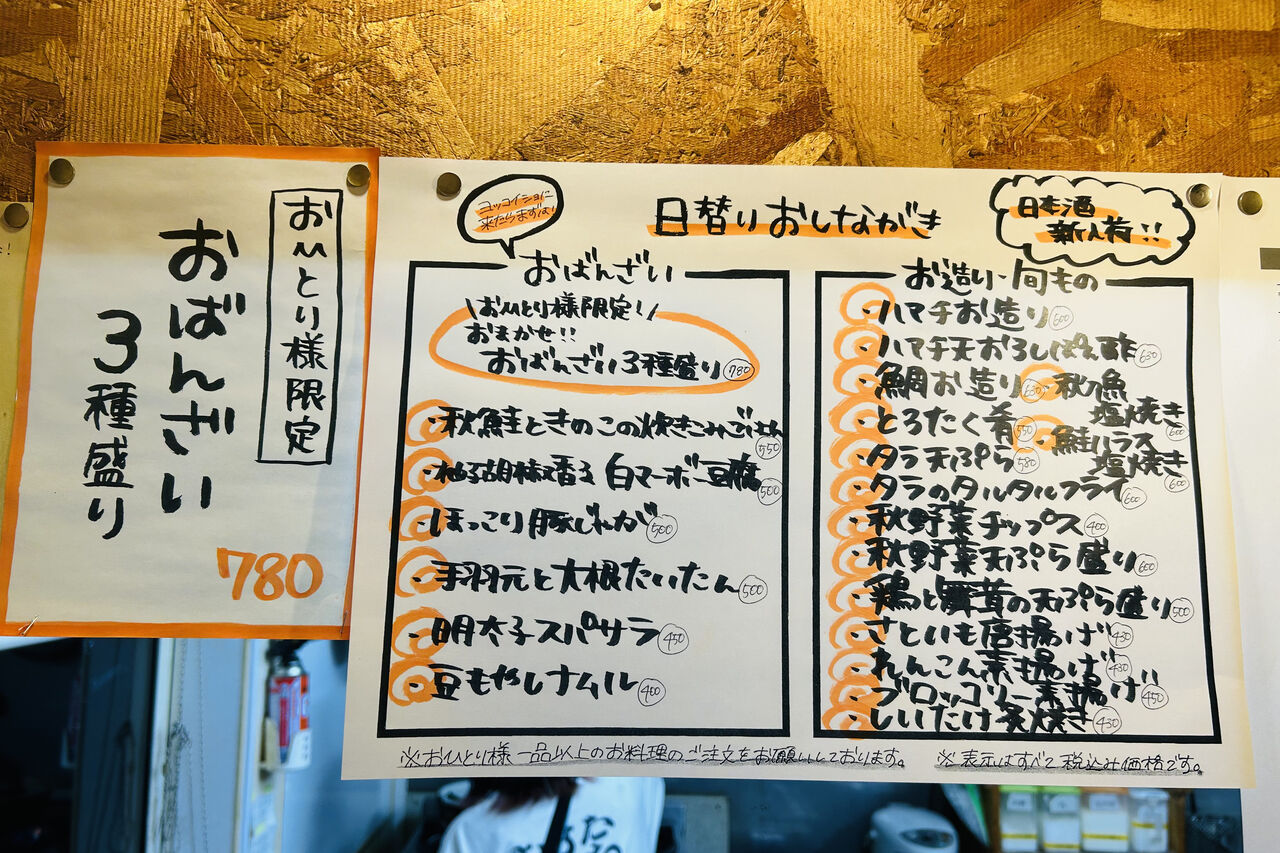 おひとり様限定
おばんざい
3種盛り
780
ヨッコイショに
来たらまずは!
日替りおしながき
日本酒
新入荷!!
おばんざい
\おひとり様限定!/
おまかせ!!
おばんざい3種盛り 780
・秋鮭ときのこの炊きこみごはん 550
・柚子胡椒香る 白マーボー豆腐 500
・ほっこり豚じゃが 500
・手羽元と大根たいたん 500
・明太子スパサラ 450
・豆もやしナムル 400
お造り・旬もの
・ハマチお造り 600
・ハマチ天おろしぽん酢 630
・鯛お造り 630
・とろたく肴 550
・タラ天ぷら 580
・タラのタルタルフライ 600
・秋刀魚
塩焼き 600
・鮭ハラス
塩焼き 600
・秋野菜チップス 400
・秋野菜天ぷら盛り 600
・鶏と舞茸の天ぷら盛り 500
・さといも唐揚げ 430
・れんこん素揚げ 430
・ブロッコリー素揚げ 450
・しいたけ炙焼き 430
※おひとり様 一品以上のお料理のご注文をお願いしております。
※表示はすべて税込み価格です。